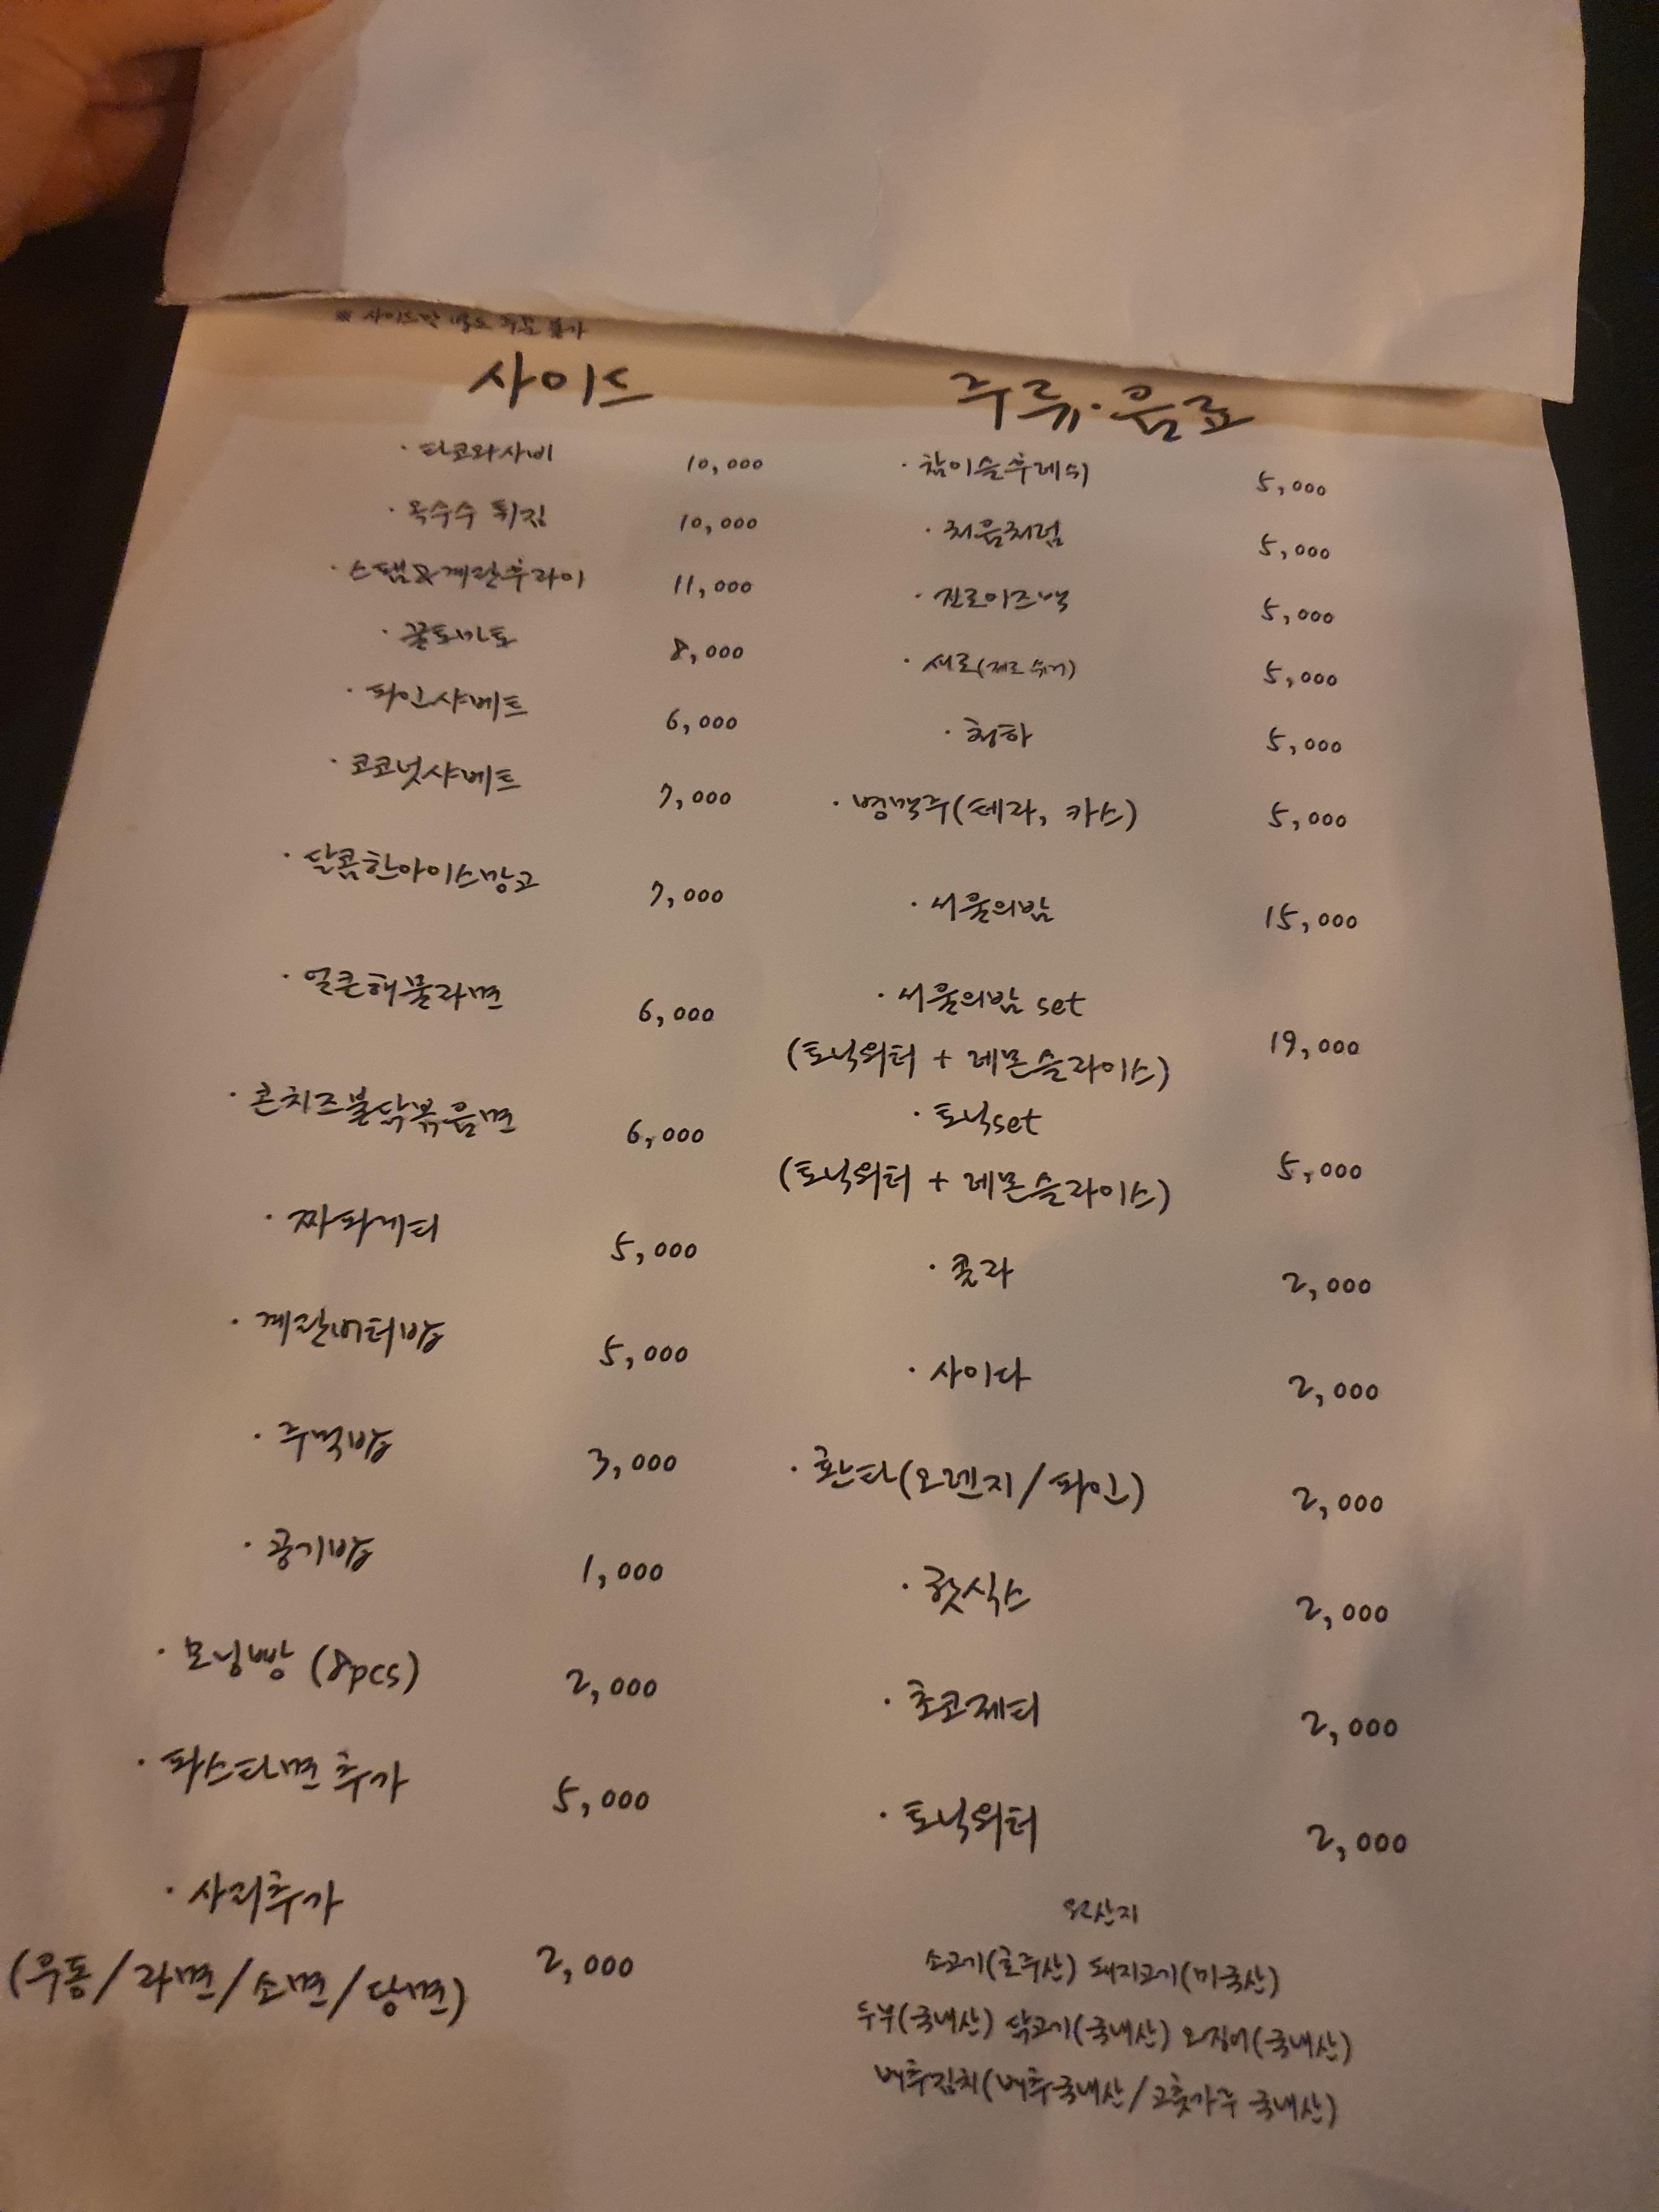 ※ 사이드만 별도 주문 불가
사이드
· 타코와사비 10,000
· 옥수수 튀김 10,000
· 스팸&계란후라이 11,000
· 꿀토마토 8,000
· 파인샤베트 6,000
· 코코넛샤베트 7,000
· 달콤한아이스망고 7,000
· 얼큰해물라면 6,000
· 콘치즈불닭볶음면 6,000
· 짜파게티 5,000
· 계란버터밥 5,000
· 주먹밥 3,000
· 공기밥 1,000
· 모닝빵 (8pcs) 2,000
· 파스타면 추가 5,000
· 사리추가
(우동/라면/소면/당면) 2,000
주류·음료
· 참이슬후레쉬 5,000
· 처음처럼 5,000
· 진로이즈백 5,000
· 새로(제로 슈거) 5,000
· 청하 5,000
· 병맥주(테라, 카스) 5,000
· 서울의밤 15,000
· 서울의밤 set
(토닉워터 + 레몬슬라이스) 19,000
· 토닉set
(토닉워터 + 레몬슬라이스) 5,000
· 콜라 2,000
· 사이다 2,000
· 환타(오렌지/파인) 2,000
· 핫식스 2,000
· 초코제티 2,000
· 토닉워터 2,000
원산지
소고기(호주산) 돼지고기(미국산)
두부(국내산) 닭고기(국내산) 오징어(국내산)
배추김치(배추국내산/고춧가루 국내산)